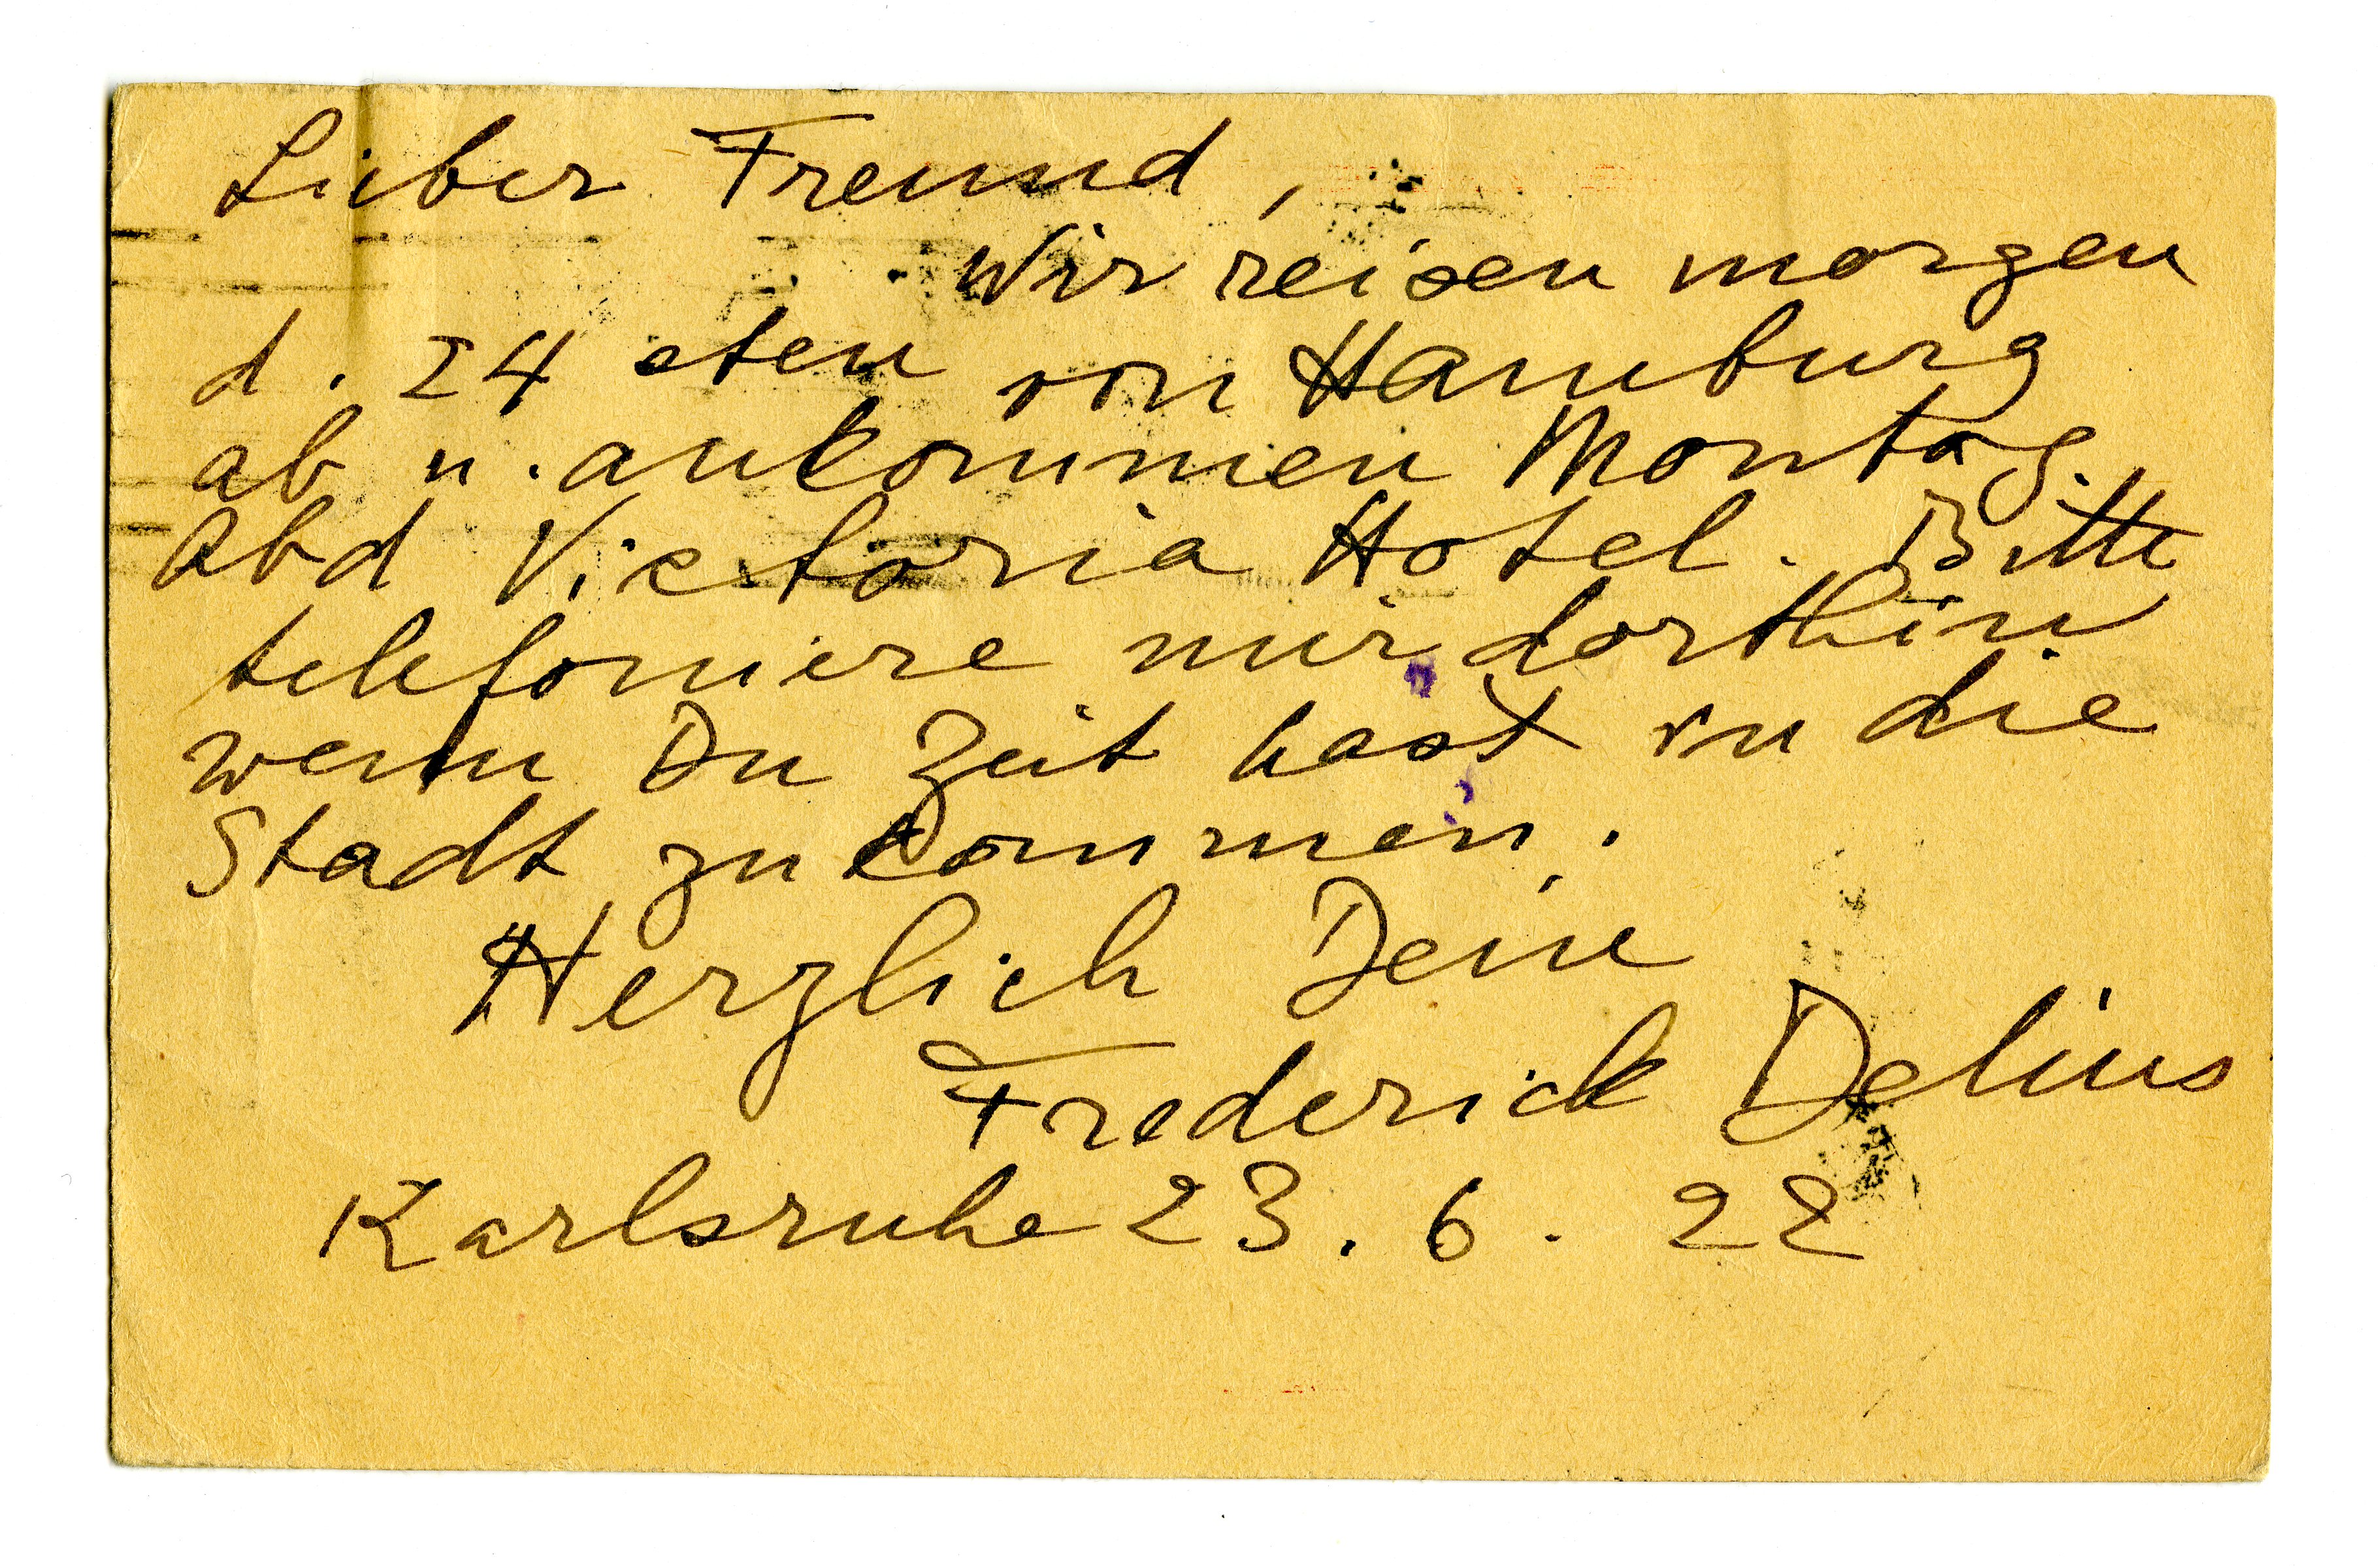 Lieber Freund,
Wir reisen morgen
d. 24 sten von Hamburg
ab u. ankommen Montag
Abd Victoria Hotel. Bitte
telefoniere mir dorthin
wenn Du Zeit hast in die
Stadt zu kommen.
Herzlich Dein
Frederick Delius
Karlsruhe 23. 6. 22